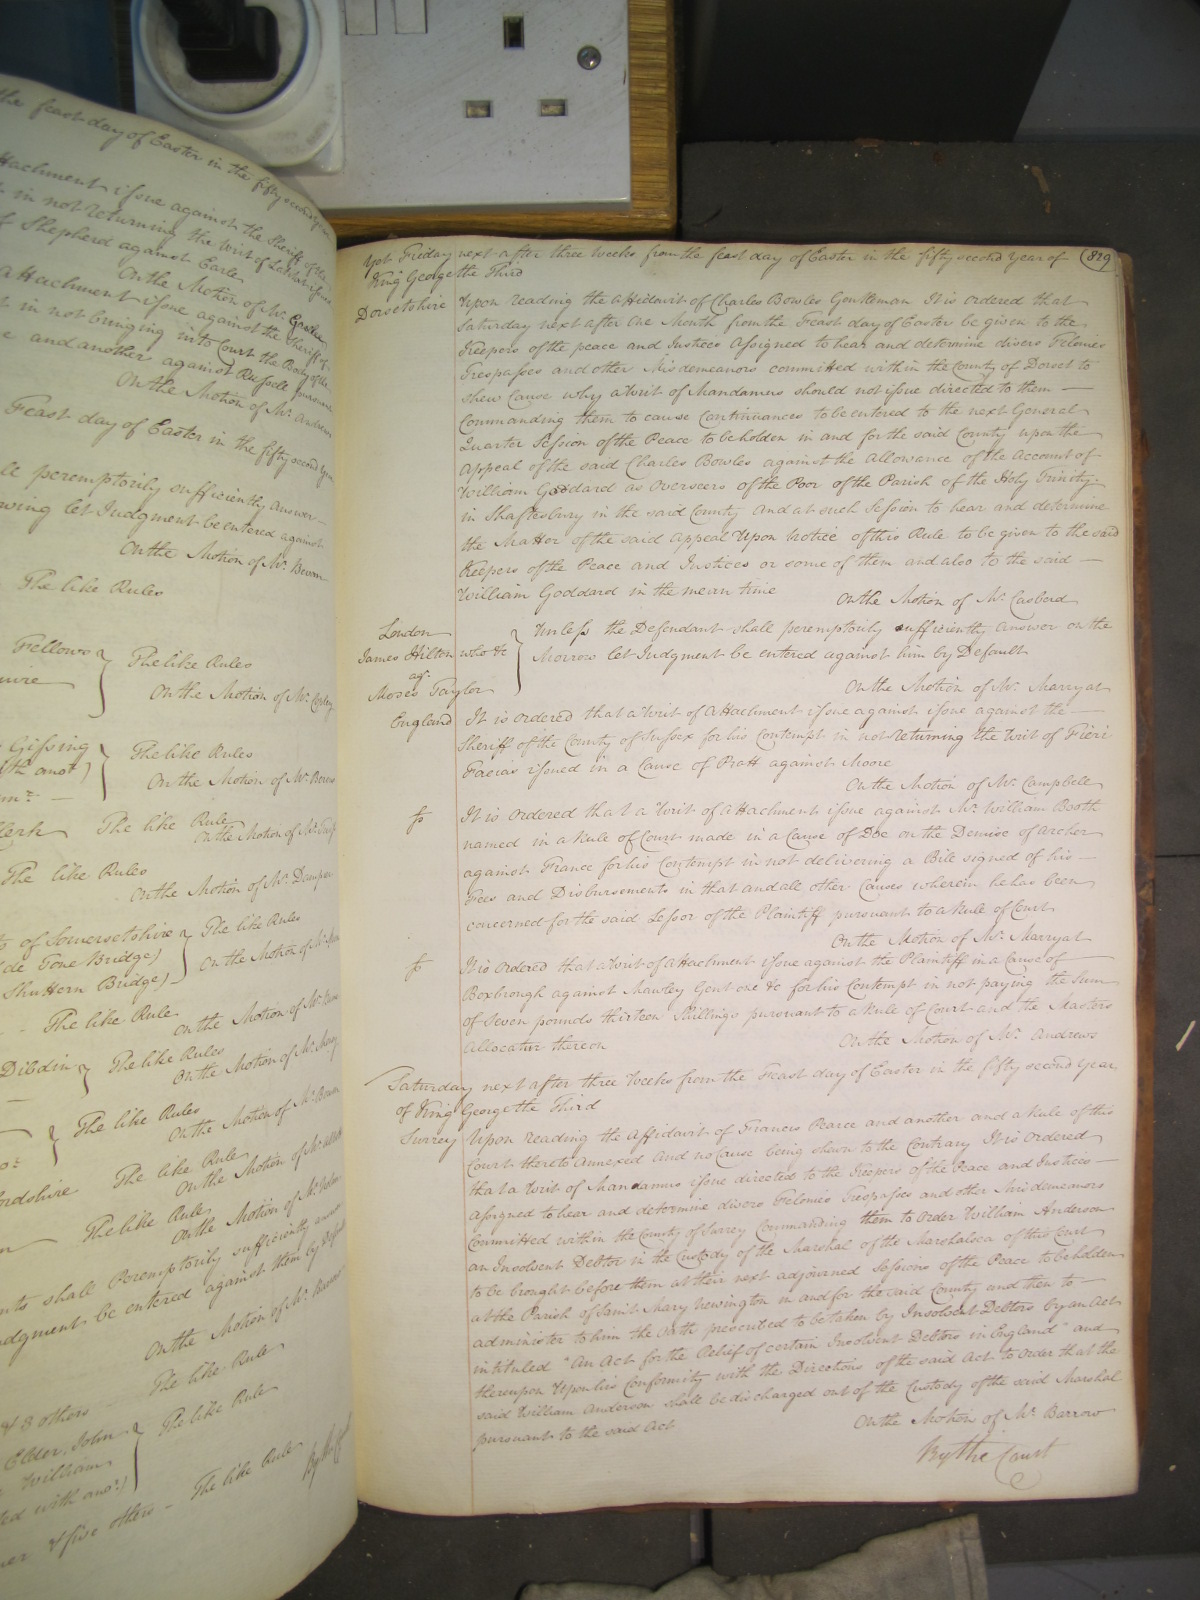 the feast day of Easter in the fifty second year
Attachment issue against the Sheriff of
in not returning the Writ of Latitat issued
of Shepherd against Earle
On the Motion of Mr.
attachment issue against the Sheriff of
in not bringing into Court the Body of the
and another against Russell pursuant
On the Motion of Mr. Andrews
Feast day of Easter in the fifty second year
peremptorily sufficiently answer
let Judgment be entered against
On the Motion of Mr.
The like Rules
Fellows The like Rules
On the Motion of Mr.
Gissing The like Rules
On the Motion of Mr.
Clerk The like Rule
On the Motion of Mr.
The like Rules
On the Motion of Mr. Dampier
of Somersetshire The like Rules
de Tone Bridge) On the Motion of Mr.
Shuttern Bridge)
The like Rule
On the Motion of Mr.
Dibdin The like Rules
On the Motion of Mr.
The like Rules
On the Motion of Mr.
ordshire The like Rule
On the Motion of Mr.
The like Rule
On the Motion of Mr.
nts shall Peremptorily sufficiently answer
Judgment be entered against them by Default
On the Motion of Mr.
The like Rule
& 8 others
Elder, John The like Rule
William
ed with anor.)
& five others - The like Rule
Yet Friday next after three Weeks from the feast day of Easter in the fifty second Year of 829
King George the Third
Dorsetshire Upon reading the Affidavit of Charles Bowles Gentleman It is ordered that
Saturday next after one Month from the Feast day of Easter be given to the
Keepers of the peace and Justices Assigned to hear and determine divers Felonies
Trespasses and other Misdemeanors committed within the County of Dorset to
shew Cause why a Writ of Mandamus should not issue directed to them —
Commanding them to cause Continuances to be entered to the next General
Quarter Session of the Peace to be holden in and for the said County upon the
Appeal of the said Charles Bowles against the Allowance of the Account of
William Goddard as Overseers of the Poor of the Parish of the Holy Trinity
in Shaftesbury in the said County and at such Session to hear and determine
the Matter of the said Appeal Upon Notice of this Rule to be given to the said
Keepers of the Peace and Justices or some of them and also to the said —
William Goddard in the mean time
On the Motion of Mr. Casberd
London Unless the Defendant shall peremptorily sufficiently answer on the
James Hilton who &c Morrow let Judgment be entered against him by Default
agt.
Moses Taylor On the Motion of Mr. Marryat
England It is ordered that a Writ of Attachment issue against issue against the —
Sheriff of the County of Sussex for his Contempt in not Returning the Writ of Fieri
Facias issued in a Cause of Pratt against Moore
On the Motion of Mr. Campbell
It is ordered that a Writ of Attachment issue against Mr. William Booth
named in a Rule of Court made in a Cause of Doe on the Demise of Archer
against France for his Contempt in not delivering a Bill signed of his —
Fees and Disbursements in that and all other Causes wherein he has been
concerned for the said Lessor of the Plaintiff pursuant to a Rule of Court
On the Motion of Mr. Marryat
It is Ordered that a Writ of Attachment issue against the Plaintiff in a Cause of
Boxbrough against Mawley Gent one &c for his Contempt in not paying the Sum
of Seven pounds thirteen Shillings pursuant to a Rule of Court and the Masters
Allocatur thereon
On the Motion of Mr. Andrews
Saturday next after three Weeks from the Feast day of Easter in the fifty second year
of King George the Third
Surrey Upon reading the Affidavit of Francis Pearce and another and a Rule of this
Court thereto annexed And no Cause being shewn to the Contrary It is ordered
that a Writ of Mandamus issue directed to the Keepers of the Peace and Justices —
Assigned to hear and determine divers Felonies Trespasses and other Misdemeanors
Committed within the County of Surrey Commanding them to Order William Anderson
an Insolvent Debtor in the Custody of the Marshal of the Marshalsea of this Court
to be brought before them at their next adjourned Sessions of the Peace to be holden
at the Parish of Saint Mary Newington in and for the said County and then to —
administer to him the Oath prescribed to be taken by Insolvent Debtors by an Act
intituled "An Act for the Relief of certain Insolvent Debtors in England" and
thereupon Upon his Conformity with the Directions of the said Act to Order that the
said William Anderson shall be discharged out of the Custody of the said Marshal
pursuant to the said Act
On the Motion of Mr. Barrow
By the Court